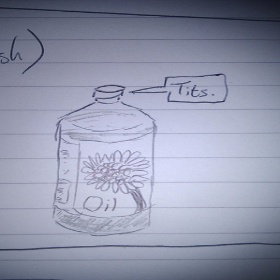 sh)
Tits.
Oil